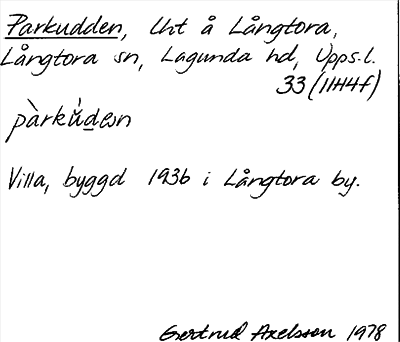 Parkudden, lht å Långtora,
Långtora sn, Lagunda hd, Upps.l.
33 (11H4f)
pàrkùden
Villa, byggd 1936 i Långtora by.
Gertrud Axelsson 1978